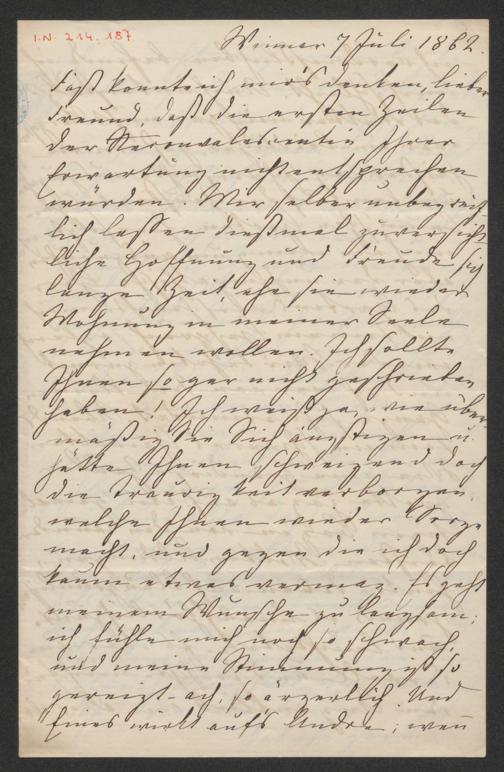 I.N. 214.187
Weimar 7 Juli 1862.
Fast konnte ich mir's denken, lieber
Freund, daß die ersten Zeilen
der Reconvalescentin Ihrer
Erwartung nicht entsprechen
würden. Mir selber unbegreif
lich lassen dießmal zuversicht
liche Hoffnung und Freude sich
lange Zeit, ehe sie wieder
Wohnung in meiner Seele
nehmen wollen. Ich sollte
Ihnen so gar nicht geschrieben
haben! Ich weiß ja, wie über
mäßig Sie Sich ängstigen u.
hätte Ihnen schweigend doch
die Traurigkeit verborgen,
welche Ihnen wieder Sorge
macht, und gegen die ich doch
kaum etwas vermag. Es geht
meinem Wunsche zu langsam;
ich fühle mich noch so schwach
und meine Stimmung ist so
gereizt – ach, so ärgerlich! Und
Eines wirkt auf's Andre; wen̄